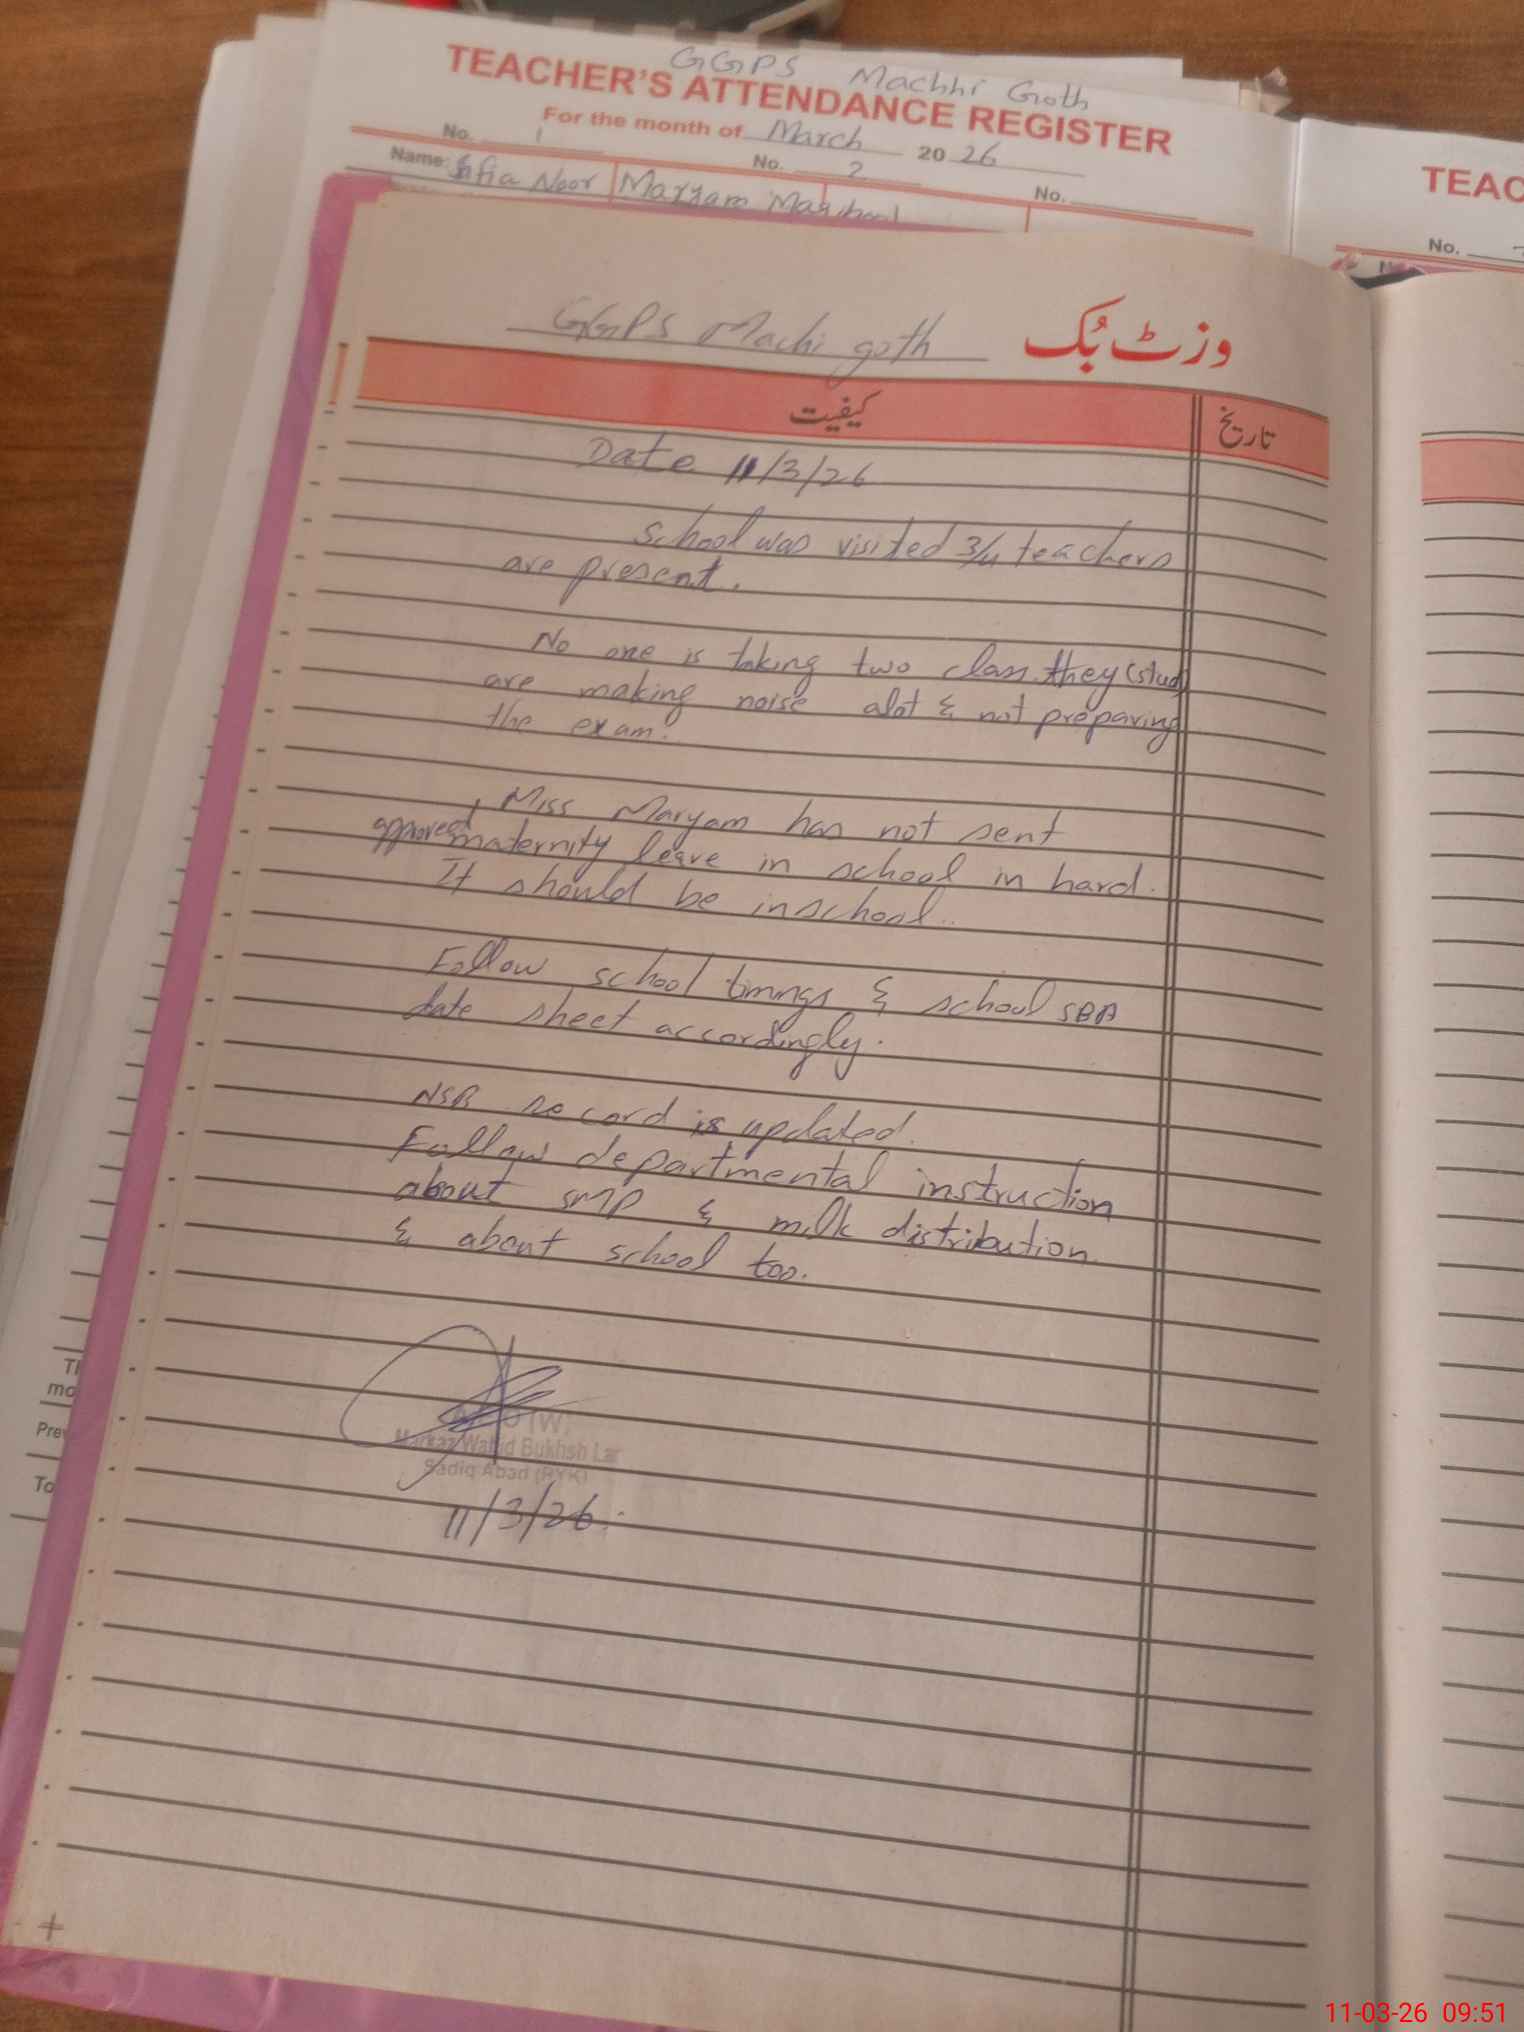 GGPS Machhi Goth
TEACHER'S ATTENDANCE REGISTER
For the month of March 2026
No. 1 No. 2 No.
Name: Safia Noor Maryam
TEAC
No.
GGPS Machi goth وزٹ بُک
کیفیت تاریخ
Date 11/3/26
School was visited 3/4 teachers
are present.
No one is taking two class. they (stud)
are making noise alot & not preparing
the exam.
Miss Maryam has not sent
approved maternity leave in school in hard.
It should be inschool..
Follow school timings & school SBA
date sheet accordingly.
NSB record is updated.
Follow departmental instruction
about SMP & milk distribution
& about school too.
(W)
Markaz Wahid Bukhsh Lar
Sadiq Abad (RYK)
11/3/26.
Prev
To
11-03-26 09:51